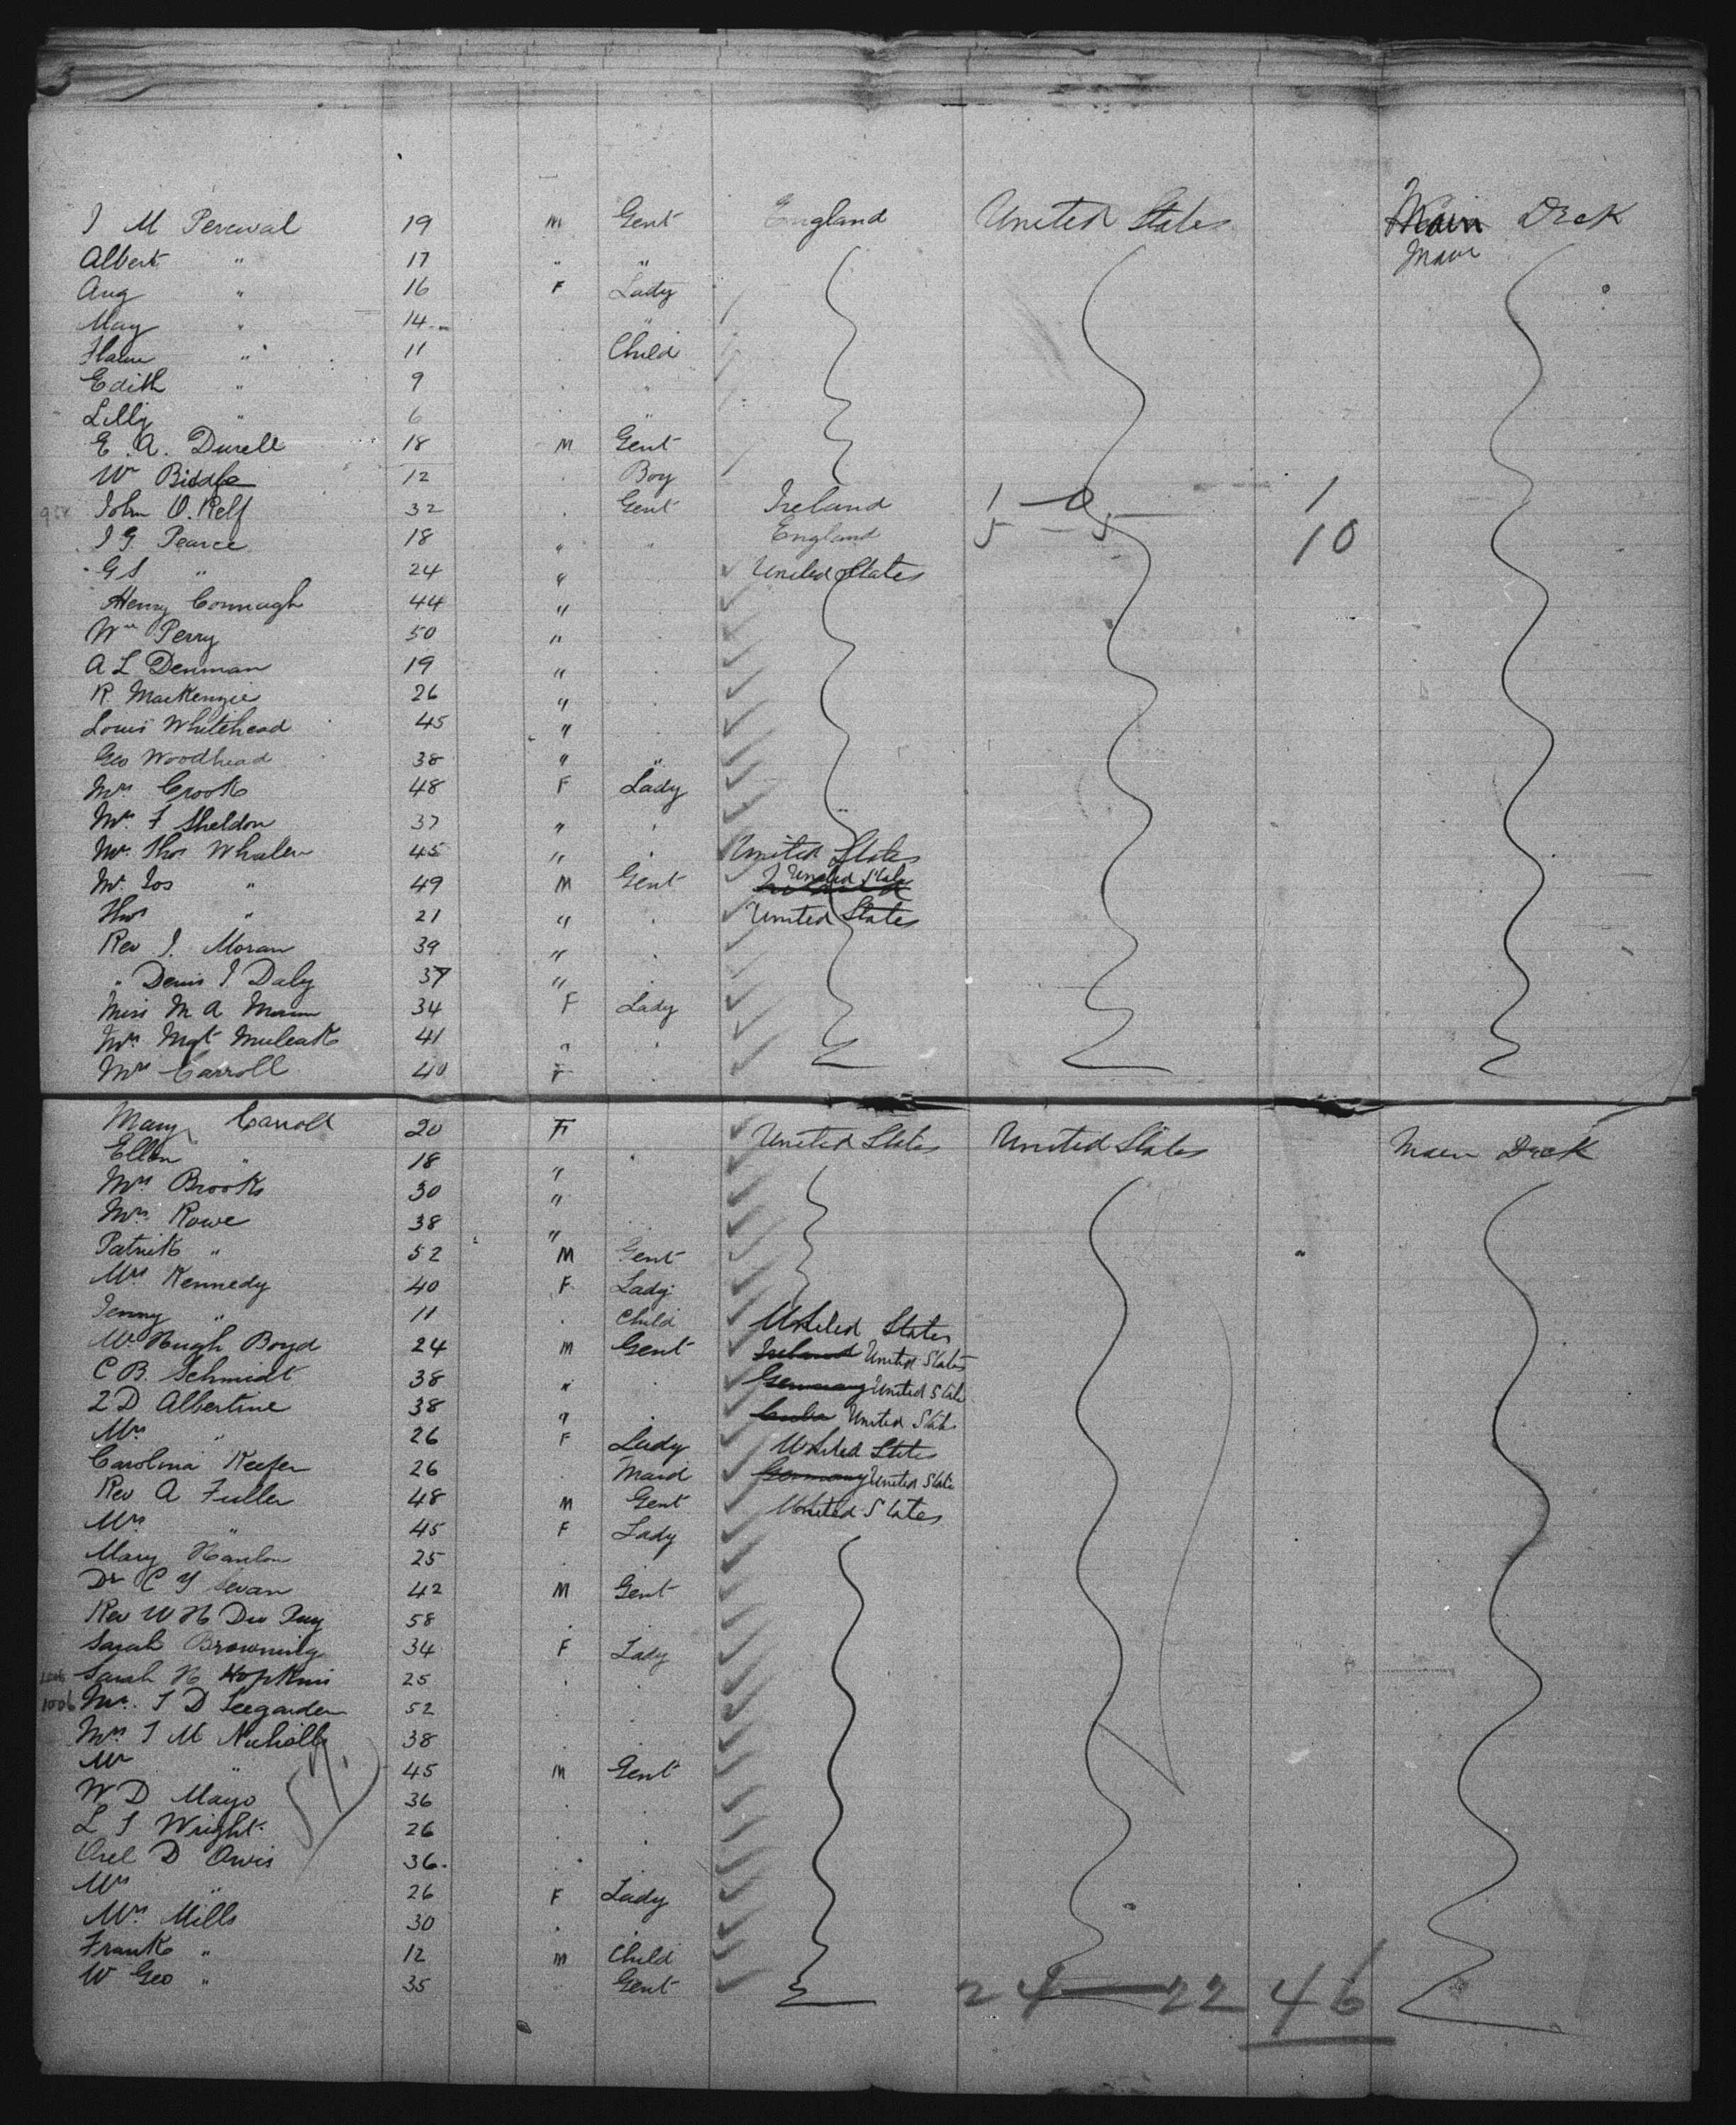 J M Percival 19 M Gent England United States Main Deck
Main
Albert " 17 " "
Aug " 16 F Lady
May " 14 "
" 11 Child
Edith " 9 "
Lilly " 6 "
E. A. Durell 18 M Gent
Wm 12 Boy
John O. Relf 32 Gent Ireland 1 - 0 1
J G Pearce 18 " " England 5 - 5 10
G S " 24 " United States
Henry Connaugh 44 "
Wm Perry 50 "
A L Denman 19 "
R MacKenzie 26 "
Louis Whitehead 45 "
Geo Woodhead 38 " "
Mrs Crook 48 F Lady
Mrs F Sheldon 37 "
Thos Whalen 45 " United States
Mr Jos " 49 M Gent United State
Thos " 21 " United States
Rev J. Moran 39 "
" Denis J Daly 37 "
Miss M A 34 F Lady
Mrs Mgt 41 "
Mrs Carroll 40 F
Mary Carroll 20 F United States United States Main Deck
Ellen " 18 "
Mrs Brooks 30 "
Mrs Rowe 38 "
Patrick " 52 M Gent
Mrs Kennedy 40 F Lady
Jenny " 11 Child United States
Mr Hugh Boyd 24 M Gent Ireland United States
C B. Schmidt 38 " Germany United State
2 D Albertine 38 " Cuba United State
Mrs " 26 F Lady United States
Carolina Keefer 26 Maid Germany United State
Rev A Fuller 48 M Gent United States
Mrs " 45 F Lady
Mary Hanlon 25
Dr C Y 42 M Gent
Rev W H Du Puy 58
Sarah Browning 34 F Lady
Sarah H Hopkins 25
1006 Mrs. J D Seegarden 52
Mrs J M Nicholls 38
Mr " 45 M Gent
W D Mayo 36
L J Wright 26
Orel D Orvis 36
Mrs " 26 F Lady
Mrs Mills 30
Frank " 12 M Child
W Geo " 35 Gent 24 - 22 46